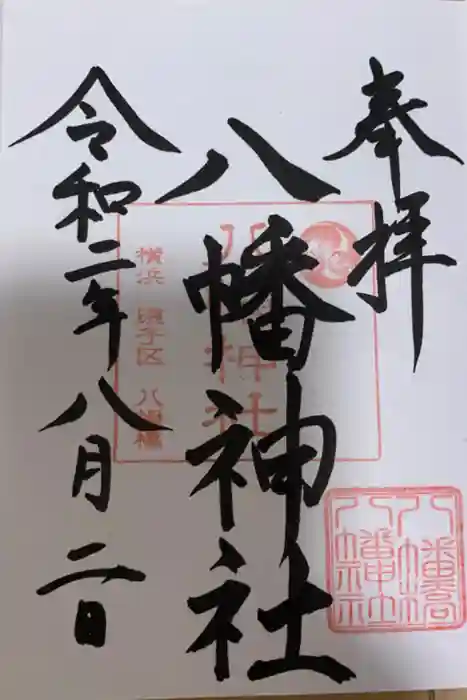 奉拝
八幡神社
令和二年八月二日
八幡神社
横浜 磯子区 八幡橋
八幡橋
八幡神社